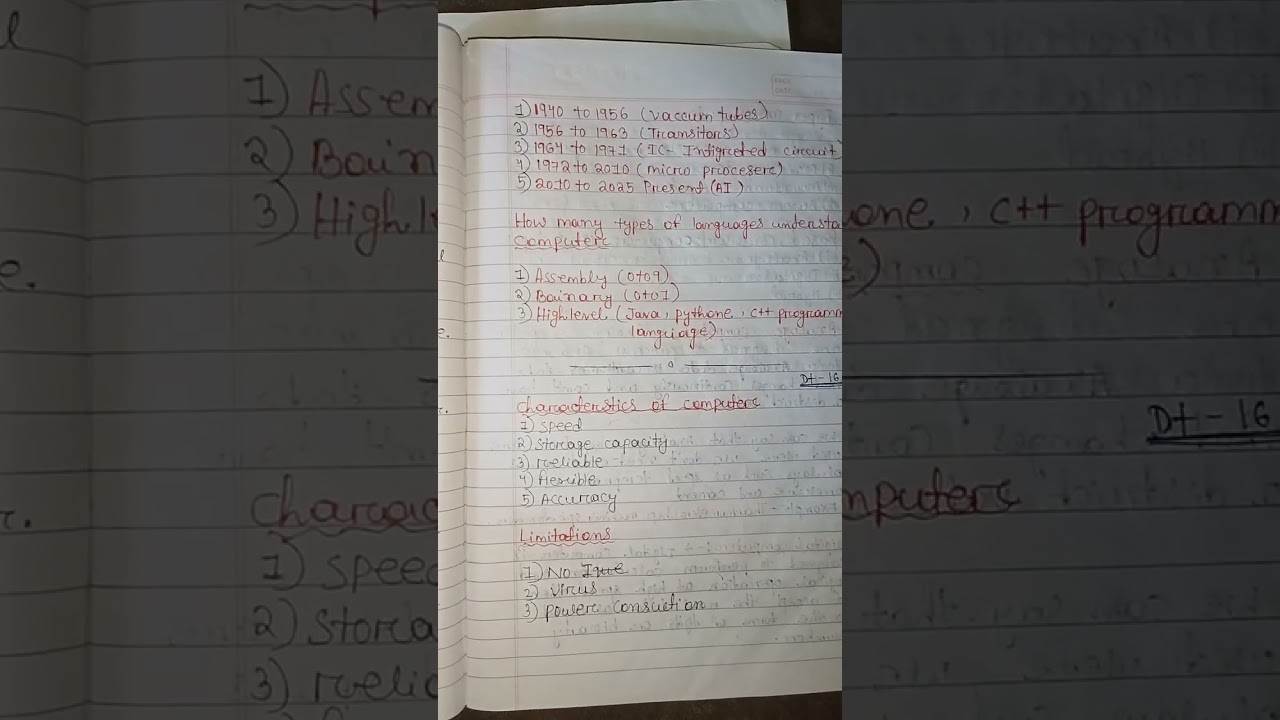 1) 1940 to 1956 (vaccum tubes)
2) 1956 to 1963 (Transitors)
3) 1964 to 1971 (IC- Indigreted circuit)
4) 1972 to 2010 (micro procesere)
5) 2010 to 2025 Present (AI)
How many types of languages understa
Computer
1) Assembly (0 to 9)
2) Bainary (0 to 1)
3) High level (Java, pythone, c++ programm
language)
Dt - 16
Characterstics of computer
1) speed
2) Storage capacity
3) reliable
4) flexible
5) Accuracy
Limitations
1) No
2) virus
3) power consuction